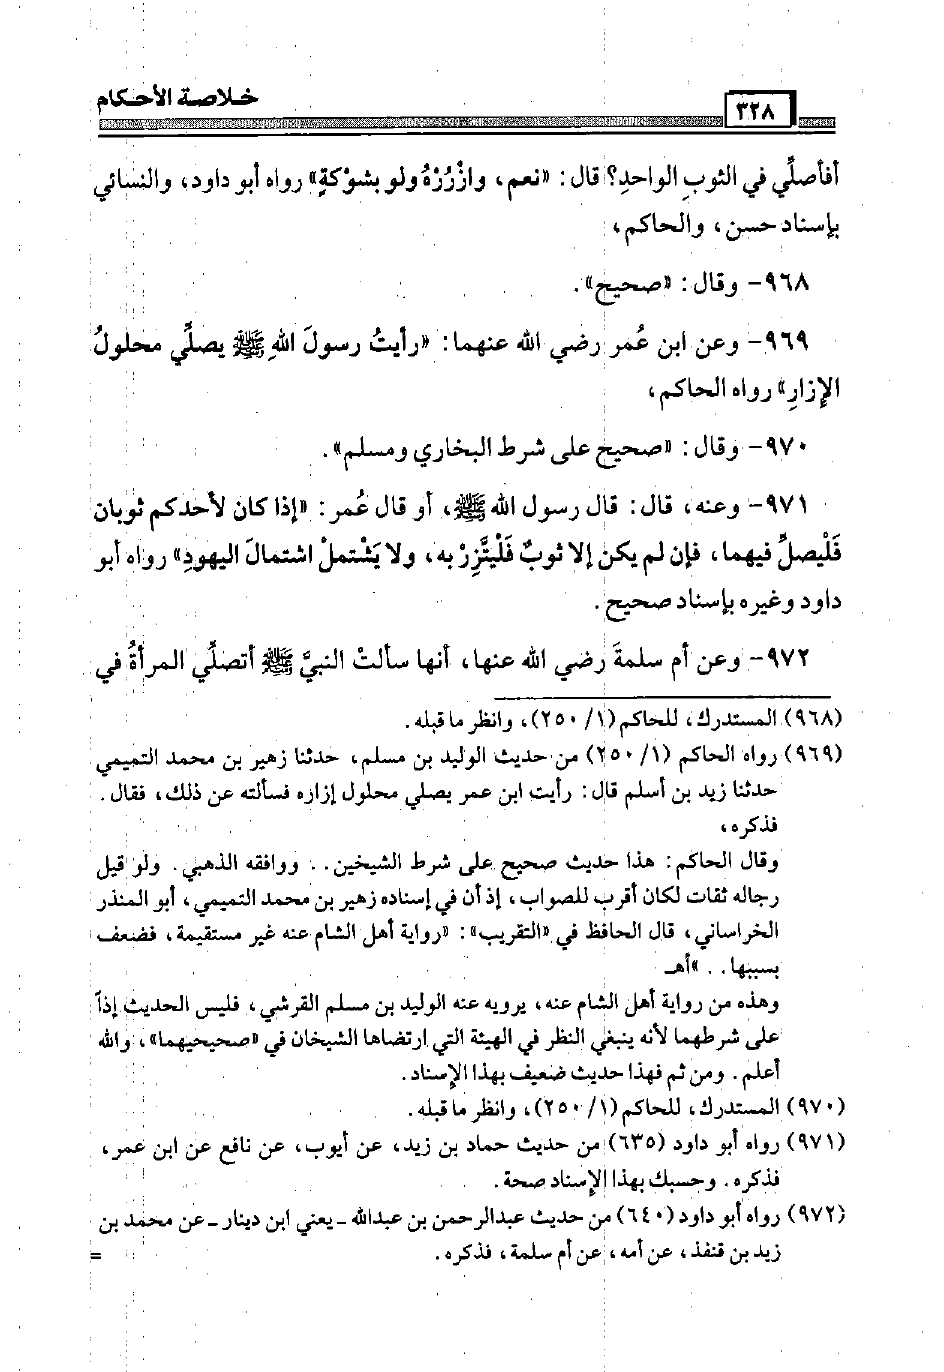 خلاصة الأحكام
٣٢٨
أفأصلِّي في الثوبِ الواحدِ؟ قال: «نعم، وازْرُرْهُ ولو بشوْكةٍ» رواه أبو داود، والنسائي
بإسناد حسن، والحاكم،
٩٦٨- وقال: «صحيح».
٩٦٩- وعن ابن عُمر رضي الله عنهما: «رأيتُ رسولَ اللهِ ﷺ يصلِّي محلولُ
الإزارِ» رواه الحاكم،
٩٧٠- وقال: «صحيح على شرط البخاري ومسلم».
٩٧١- وعنه، قال: قال رسول الله ﷺ، أو قال عُمر: «إذا كان لأحدكم ثوبان
فَلْيصلِّ فيهما، فإن لم يكن إلا ثوبٌ فَلْيتَّزِرْ به، ولا يَشْتملْ اشتمالَ اليهودِ» رواه أبو
داود وغيره بإسناد صحيح.
٩٧٢- وعن أم سلمةَ رضي الله عنها، أنها سألتْ النبيَّ ﷺ أتصلِّي المرأةُ في
(٩٦٨) المستدرك، للحاكم (١/ ٢٥٠)، وانظر ما قبله.
(٩٦٩) رواه الحاكم (١/ ٢٥٠) من حديث الوليد بن مسلم، حدثنا زهير بن محمد التميمي
حدثنا زيد بن أسلم قال: رأيت ابن عمر يصلي محلول إزاره فسألته عن ذلك، فقال.
فذكره،
وقال الحاكم: هذا حديث صحيح على شرط الشيخين.. ووافقه الذهبي. ولو قيل
رجاله ثقات لكان أقرب للصواب، إذ أن في إسناده زهير بن محمد التميمي، أبو المنذر
الخراساني، قال الحافظ في «التقريب»: «رواية أهل الشام عنه غير مستقيمة، فضعف
بسببها..»أهـ
وهذه من رواية أهل الشام عنه، يرويه عنه الوليد بن مسلم القرشي، فليس الحديث إذاً
على شرطهما لأنه ينبغي النظر في الهيئة التي ارتضاها الشيخان في «صحيحيهما»، والله
أعلم. ومن ثم فهذا حديث ضعيف بهذا الإسناد.
(٩٧٠) المستدرك، للحاكم (١/ ٢٥٠)، وانظر ما قبله.
(٩٧١) رواه أبو داود (٦٣٥) من حديث حماد بن زيد، عن أيوب، عن نافع عن ابن عمر،
فذكره. وحسبك بهذا الإسناد صحة.
(٩٧٢) رواه أبو داود (٦٤٠) من حديث عبدالرحمن بن عبدالله ـ يعني ابن دينار ـ عن محمد بن
زيد بن قنفذ، عن أمه، عن أم سلمة، فذكره. =